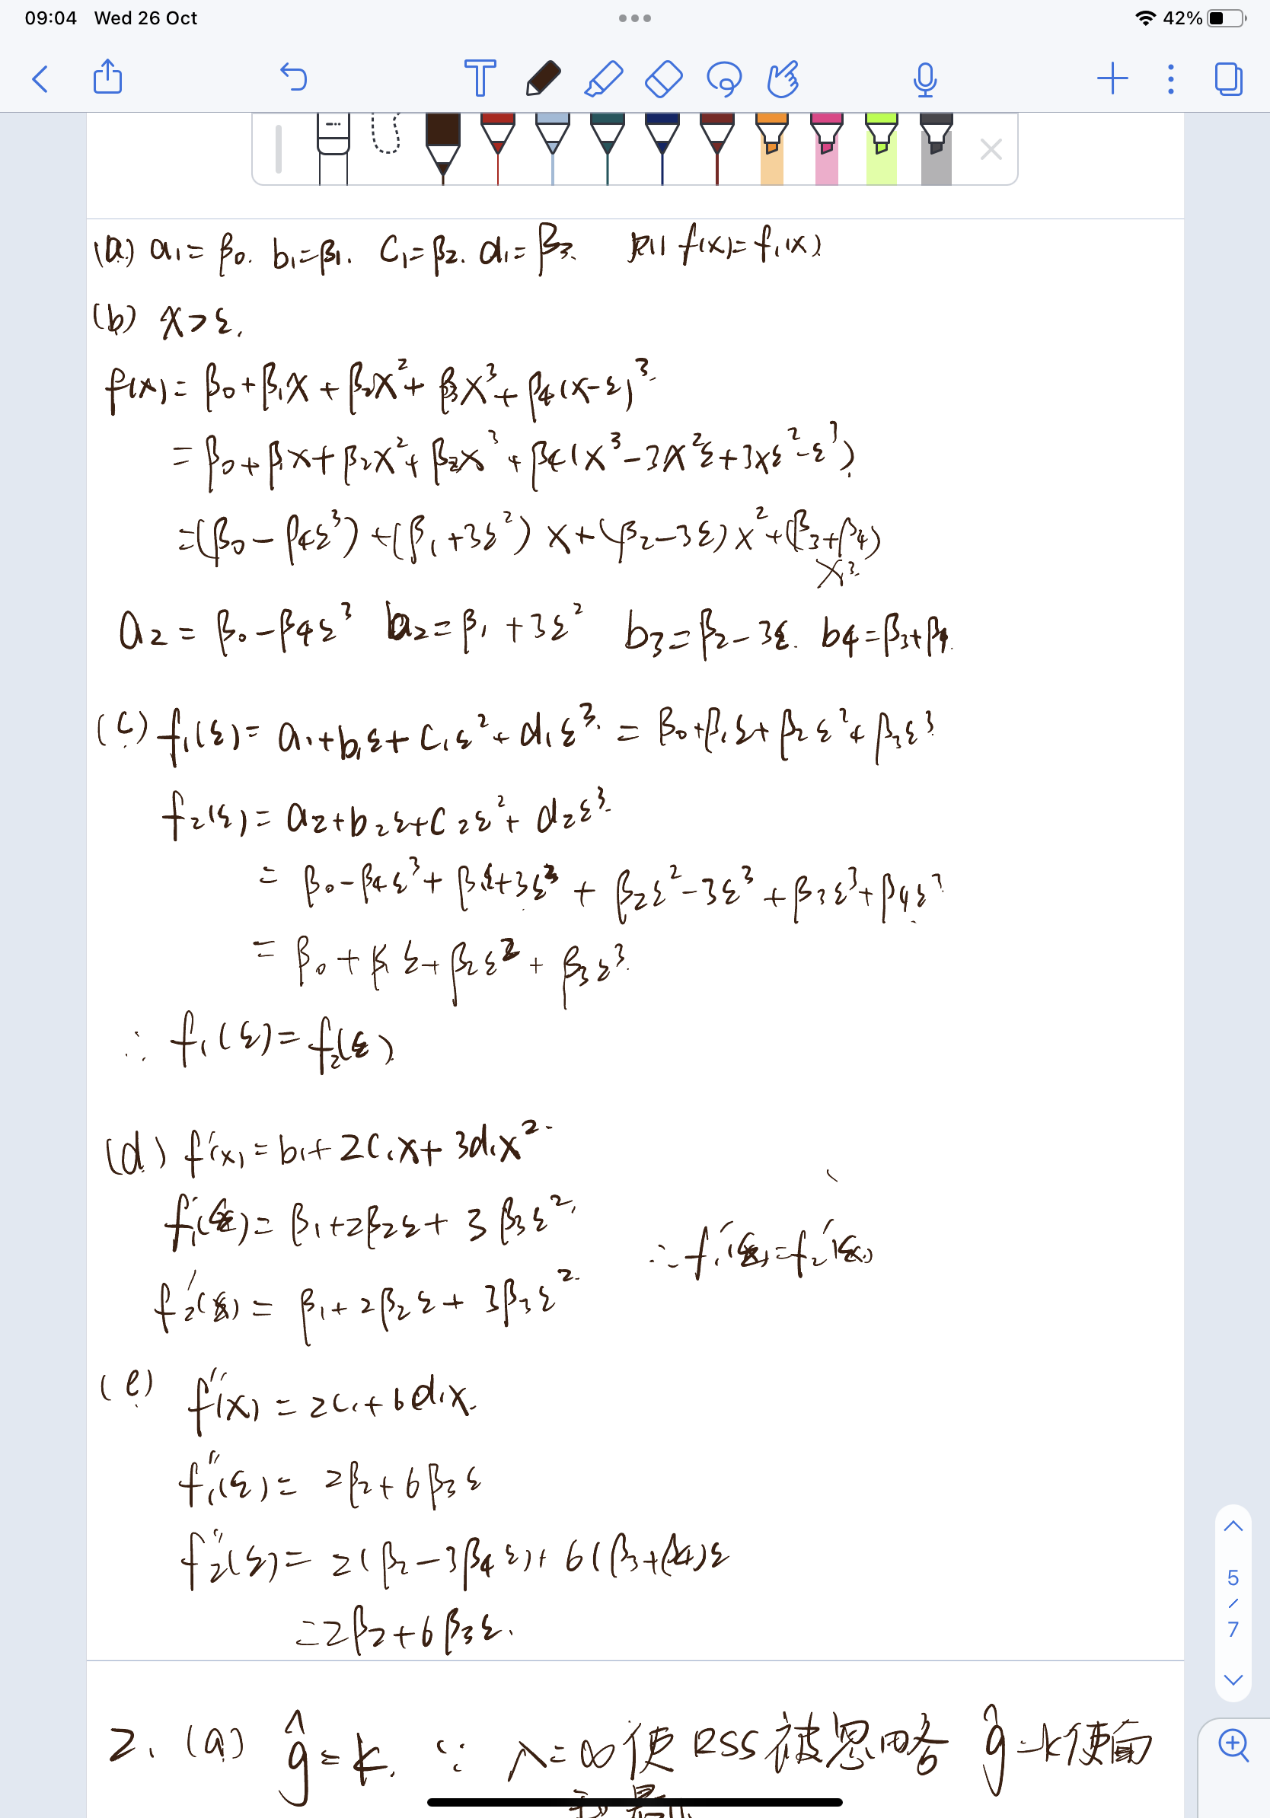 09:04 Wed 26 Oct
42%
(a) a₁ = β₀. b₁ = β₁. C₁ = β₂. d₁ = β₃. 则 f(x) = f₁(x)
(b) x > ξ.
f(x) = β₀ + β₁x + β₂x² + β₃x³ + β₄(x-ξ)³
= β₀ + β₁x + β₂x² + β₃x³ + β₄(x³ - 3x²ξ + 3xξ² - ξ³)
= (β₀ - β₄ξ³) + (β₁ + 3ξ²) x + (β₂ - 3ξ) x² + (β₃ + β₄) x³
a₂ = β₀ - β₄ξ³ b₂ = β₁ + 3ξ² b₃ = β₂ - 3ξ. b₄ = β₃ + β₄.
(c) f₁(ξ) = a₁ + b₁ξ + C₁ξ² + d₁ξ³. = β₀ + β₁ξ + β₂ξ² + β₃ξ³
f₂(ξ) = a₂ + b₂ξ + C₂ξ² + d₂ξ³.
= β₀ - β₄ξ³ + β₁ξ + 3ξ³ + β₂ξ² - 3ξ³ + β₃ξ³ + β₄ξ³
= β₀ + β₁ξ + β₂ξ² + β₃ξ³.
∴ f₁(ξ) = f₂(ξ)
(d) f'(x) = b₁ + 2C₁x + 3d₁x².
f₁'(ξ) = β₁ + 2β₂ξ + 3β₃ξ².
∴ f₁'(ξ) = f₂'(ξ)
f₂'(ξ) = β₁ + 2β₂ξ + 3β₃ξ².
(e) f''(x) = 2C₁ + 6d₁x.
f₁''(ξ) = 2β₂ + 6β₃ξ
f₂''(ξ) = 2(β₂ - 3β₄ξ) + 6(β₃ + β₄)ξ
= 2β₂ + 6β₃ξ.
5
/
7
2. (a) ĝ = k. ∵ λ = ∞ 使 RSS 被忽略 ĝ = k 使